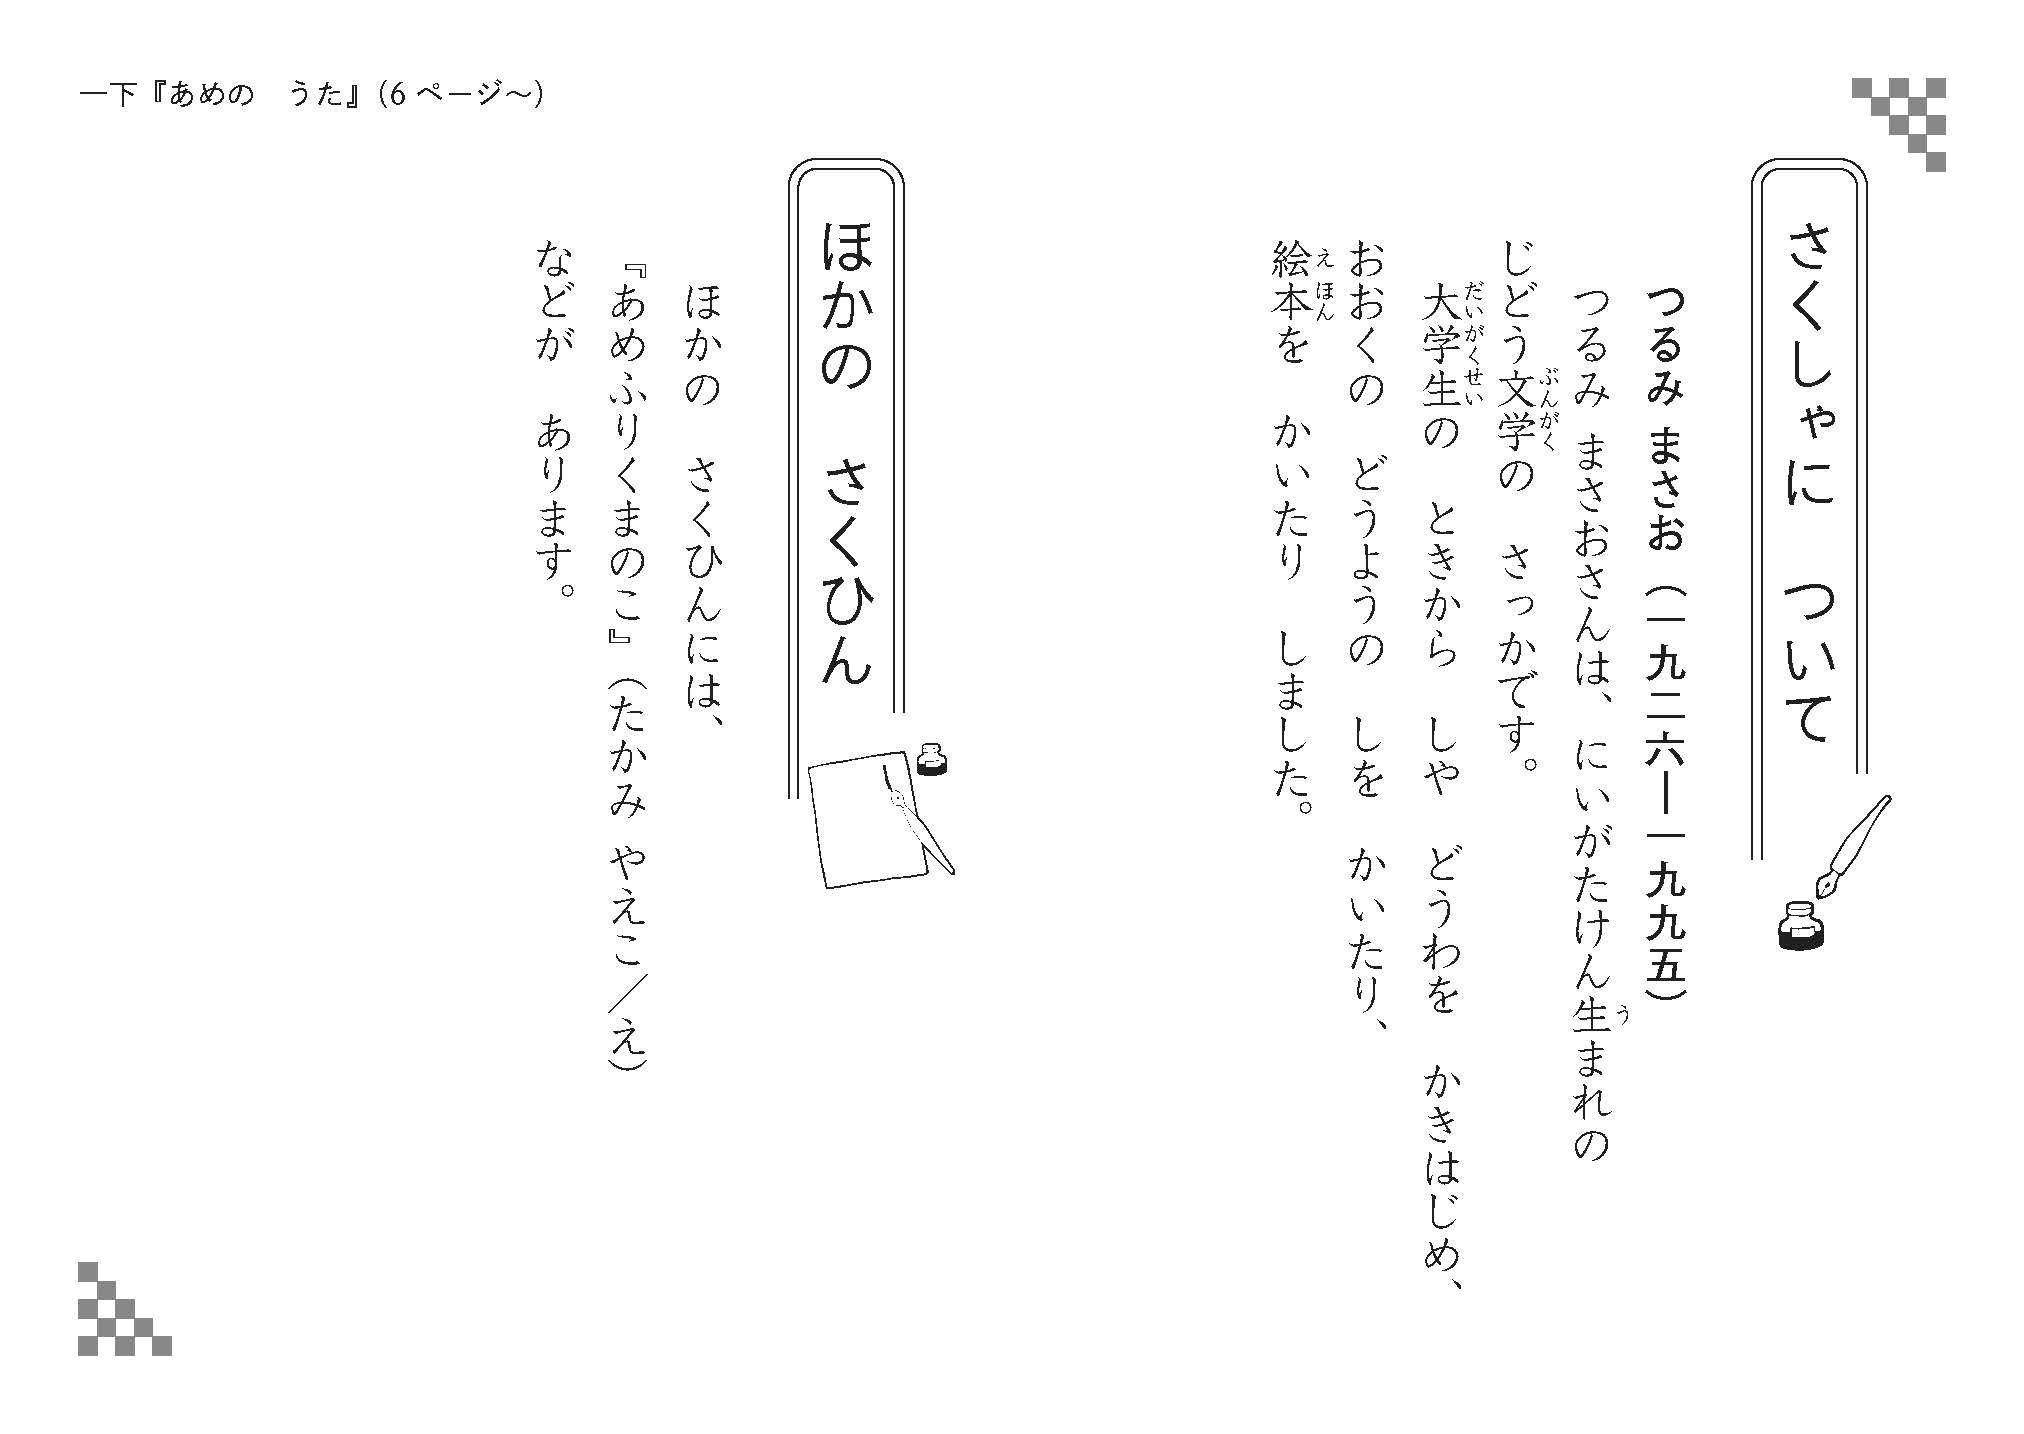 一下『あめの　うた』（6 ページ～）
さくしゃに　ついて
つるみ まさお（一九二六―一九九五）
つるみ まさおさんは、にいがたけん生まれの
じどう文学の　さっかです。
大学生の　ときから　しや　どうわを　かきはじめ、
おおくの　どうようの　しを　かいたり、
絵本を　かいたり　しました。
ほかの　さくひん
ほかの　さくひんには、
『あめふりくまのこ』（たかみ やえこ／え）
などが　あります。